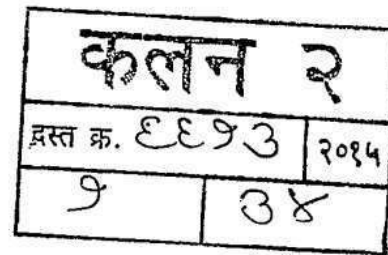 कलन २
दस्त क्र. ६६१३ २०१५
१ ३४